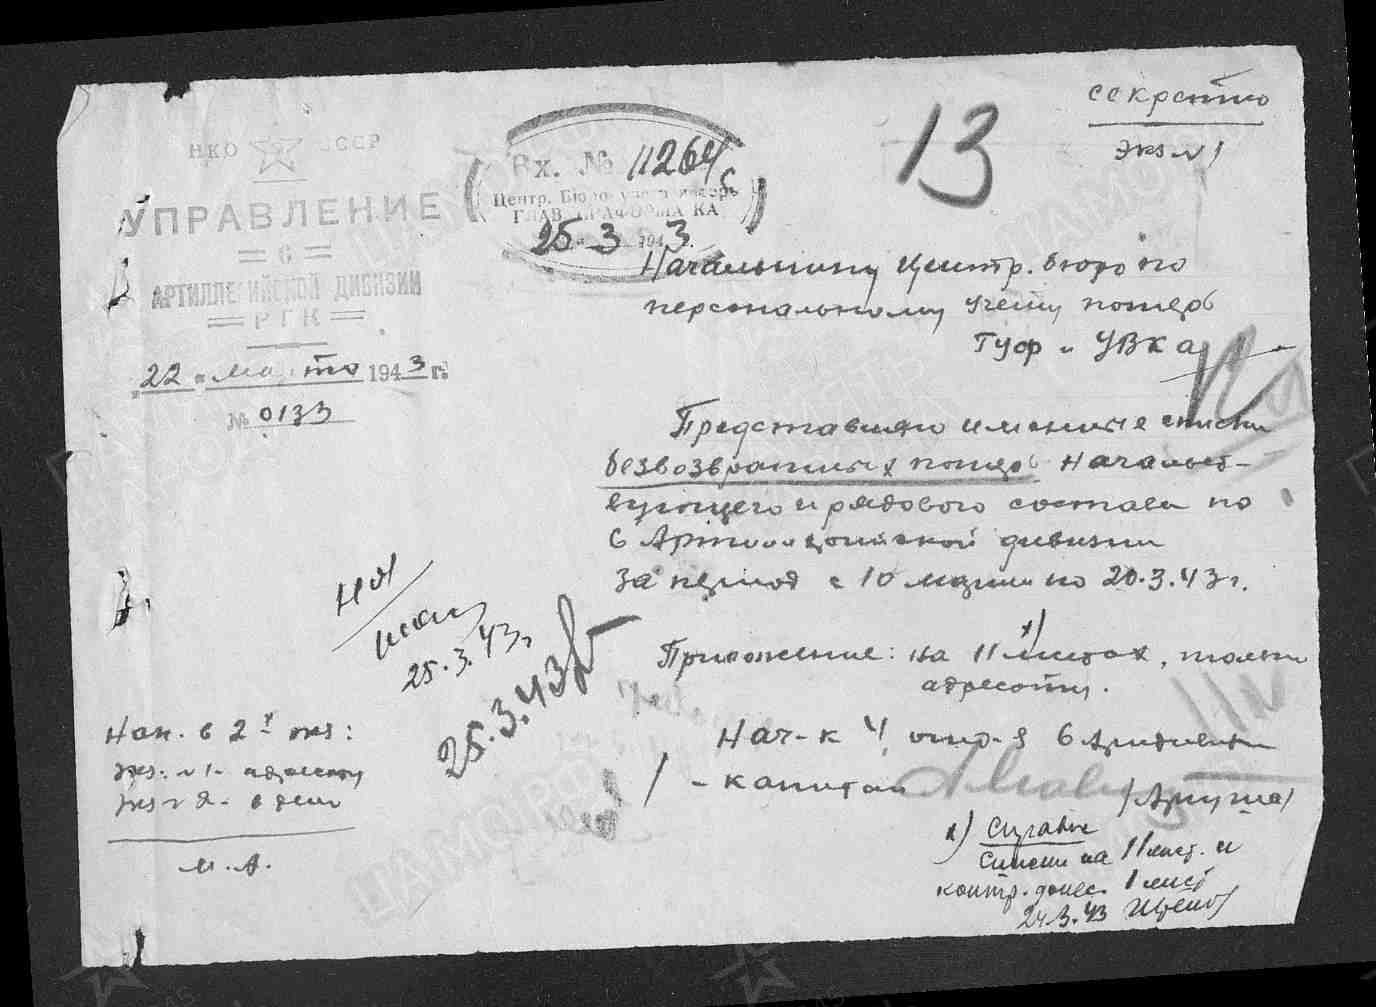 секретно
экз №1
13
НКО СССР
УПРАВЛЕНИЕ
6
АРТИЛЛЕРИЙСКОЙ ДИВИЗИИ
РГК
"22" марта 1943 г.
№ 0133
Вх. № 11264с
Центр. Бюро
ГЛАВ КА
25 3 1943.
Начальнику Центр. бюро по
персональному учету потерь
Гуф и УВКа
Представляю именные списки
безвозвратных потерь начальст-
вующего и рядового состава по
6 Артиллерийской дивизии
за период с 10 марта по 20.3.43 г.
Приложение: на 11 х) листах, только
адресату.
Нач-к 4 отд-я 6 Артдивизии
- капитан
На
25.3.43г
25.3.43
Нап. в 2х экз:
экз. №1- адресату
экз №2- в дело
м.А.
х) Справка
Списки на 11 лист. и
контр. донес. 1 лист
24.3.43